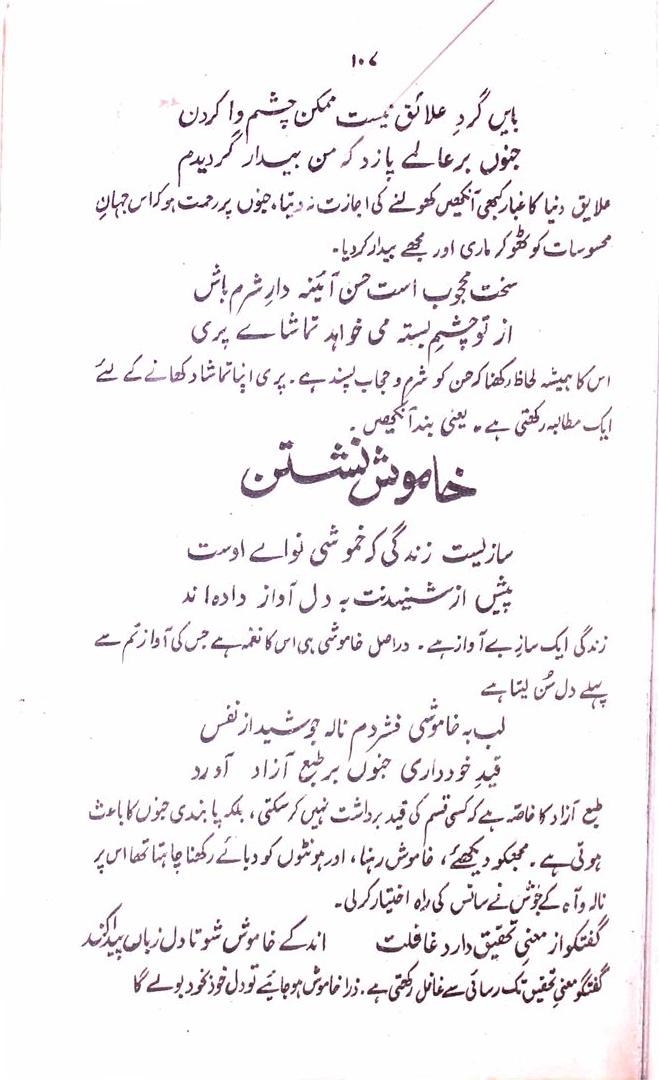 ۱۰۷
بایں گردِ علائق نیست ممکن چشم وا کردن
جنوں بر عالمے پا زد کہ من بیدار گردیدم
علایق دنیا کا غبار کبھی آنکھیں کھولنے کی اجازت نہ دیتا، جنوں پر رحمت ہو کہ اس جہانِ
محسوسات کو ٹھوکر ماری اور مجھے بیدار کر دیا۔
سخت محجوب است حسن آئینہ دارِ شرم باش
از تو چشمِ بستہ می خواہد تماشاے پری
اس کا ہمیشہ لحاظ رکھنا کہ حسن کو شرم و حجاب پسند ہے۔ پری اپنا تماشا دکھانے کے لئے
ایک مطالبہ رکھتی ہے۔ یعنی بند آنکھیں۔
خاموش نشستن
سازیست زندگی کہ خموشی نواے اوست
پیش از شنیدنت بہ دل آواز دادہ اند
زندگی ایک سازِ بے آواز ہے۔ دراصل خاموشی ہی اس کا نغمہ ہے جس کی آواز تم سے
پہلے دل سُن لیتا ہے
لب بہ خاموشی فشردم نالہ جوشید از نفس
قیدِ خودداری جنوں بر طبع آزاد آورد
طبع آزاد کا خاصّہ ہے کہ کسی قسم کی قید برداشت نہیں کر سکتی، بلکہ پابندی جنوں کا باعث
ہوتی ہے۔ مجھکو دیکھئے، خاموش رہنا، اور ہونٹوں کو دبائے رکھنا چاہتا تھا اس پر
نالہ و آہ کے جوش نے سانس کی راہ اختیار کر لی۔
گفتگو از معنیِ تحقیق دارد غافلت اندکے خاموش شو تا دل زباں پیدا کند
گفتگو معنیِ تحقیق تک رسائی سے غافل رکھتی ہے۔ ذرا خاموش ہو جائیے تو دل خود بخود بولے گا